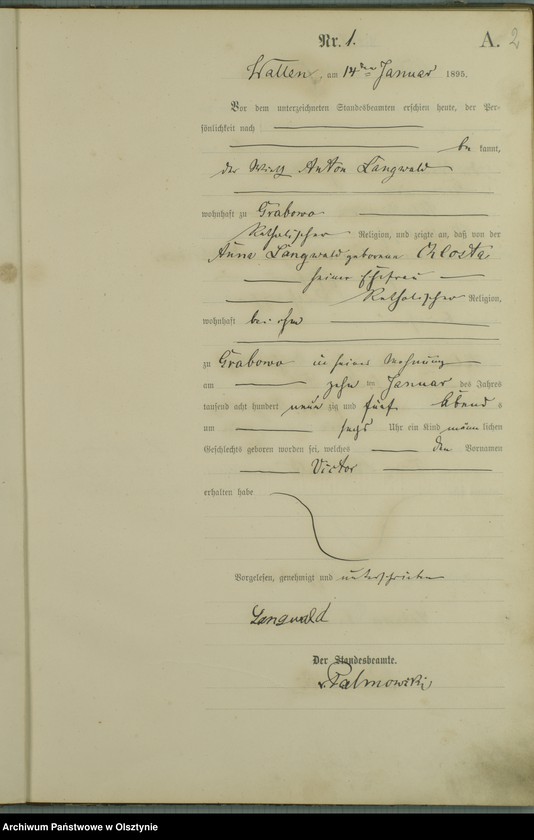 Nr. 1.
A. 2
Wallen, am 14ten Januar 1895.
Vor dem unterzeichneten Standesbeamten erschien heute, der Per-
sönlichkeit nach
be kannt,
der Wirth Anton Langwald
wohnhaft zu Grabowo
Katholischer Religion, und zeigte an, daß von der
Anna Langwald geborene
seiner Ehefrau
Katholischer Religion,
wohnhaft bei ihm
zu Grabowo in seiner Wohnung
am zehn ten Januar des Jahres
tausend acht hundert neun zig und fünf Abend s
um sechs Uhr ein Kind männ lichen
Geschlechts geboren worden sei, welches den Vornamen
Victor
erhalten habe
Vorgelesen, genehmigt und unterschrieben
Langwald
Der Standesbeamte.
v. Palmowski
Archiwum Państwowe w Olsztynie